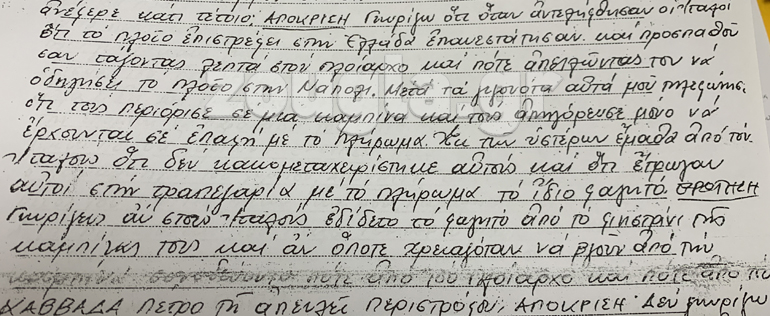 ανέφερε κάτι τέτοιο; ΑΠΟΚΡΙΣΗ Γνωρίζω ότι όταν αντελήφθησαν οι Ιταλοί
ότι το πλοίο επιστρέφει στην Ελλάδα επανεστάτησαν. και προσπαθού
σαν τάζοντας λεπτά στον πλοίαρχο και πότε απειλώντας τον να
οδηγήσει το πλοίο στην Νάπολι. Μετά τα γεγονότα αυτά μου τηλεφώνησε
ότι τους περιόρισε σε μία καμπίνα και τους απηγόρευσε μόνο να
έρχουνται σε επαφή με το πλήρωμα. Εκ των υστέρων έμαθα από τον
Ιταλούς ότι δεν κακομεταχειρίστηκε αυτούς και ότι έτρωγαν
αυτοί στην τραπεζαρία με το πλήρωμα το ίδιο φαγητό. ΕΡΩΤΗΣΗ
Γνωρίζεις αν στους Ιταλούς εδίδετο το φαγητό από το φινιστρίνι της
καμπίνας τους και αν όποτε χρειαζόταν να βγουν από την
καμπίνα συνοδεύοντο πότε από τον πλοίαρχο και πότε από τον
ΧΑΒΒΑΔΑ Πέτρο τη απειλεί περιστρόφου; ΑΠΟΚΡΙΣΗ Δεν γνωρίζω
zougla.gr